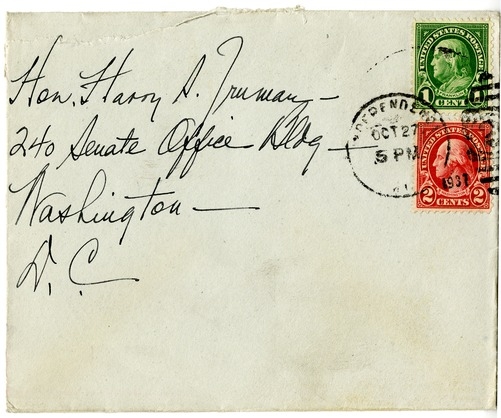 Hon. Harry S. Truman —
240 Senate Office Bldg —
Washington —
D. C.
UNITED STATES POSTAGE
1 CENT 1
INDEPENDENCE
OCT 27
5 PM
1937
UNITED STATES POSTAGE
2 CENTS 2